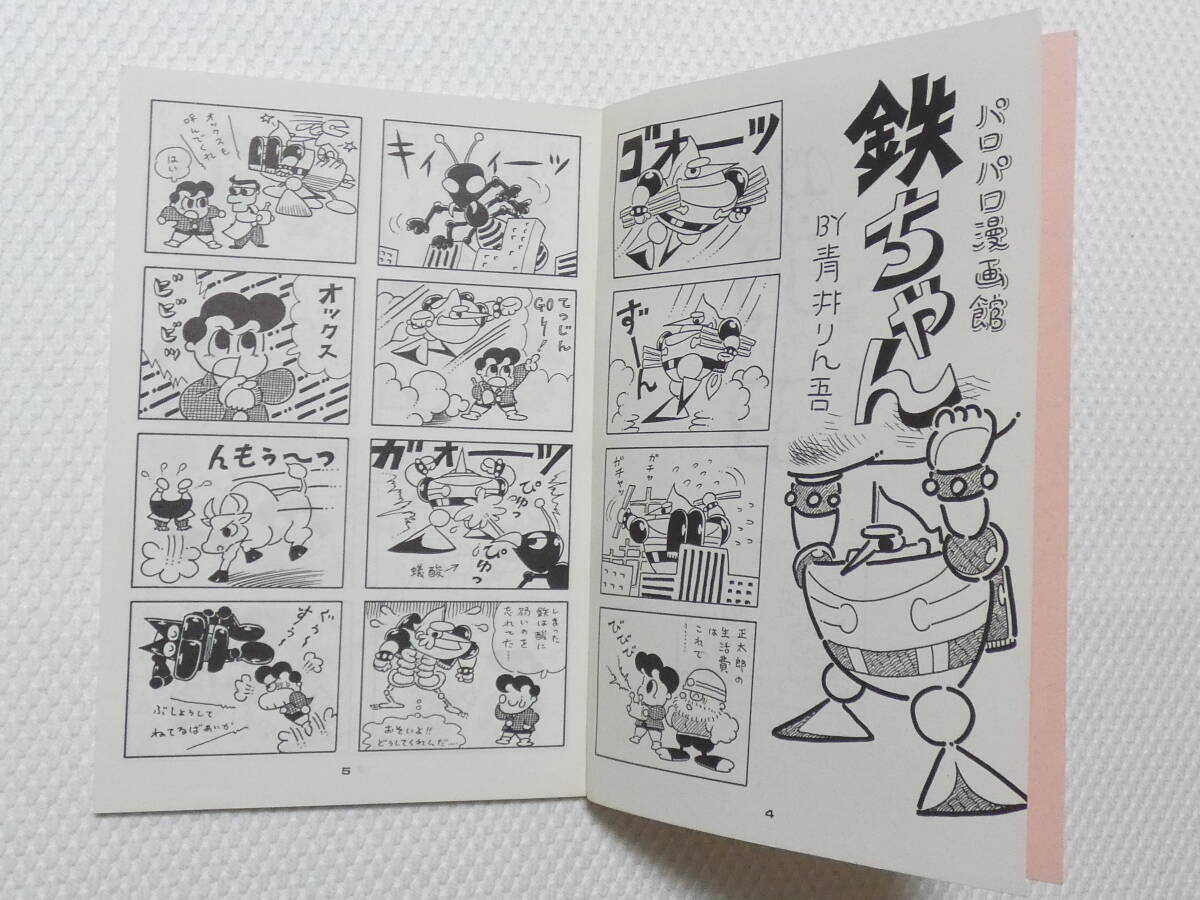 パロパロ漫画館
鉄ちゃん
BY青井りん吾
ゴオーーッ
ずーん
ガチャ
ガチャッ
正太郎の
生活費
は
これで
………
びびび
4
キィィィーーッ
てつじん
GOー!
ガオーーッ
ぴゅっ
ぴゅっ
蟻酸→
しまった
鉄は酸に
弱いのを
忘れてた…
おそいよ!!
どうしてくれんだ…
オックスも
呼んでくれ
はい
オックス
ビビビビッ
んもぅ〜っ
ぐう〜
すう〜
ぶしょうして
ねてるばあいか
5